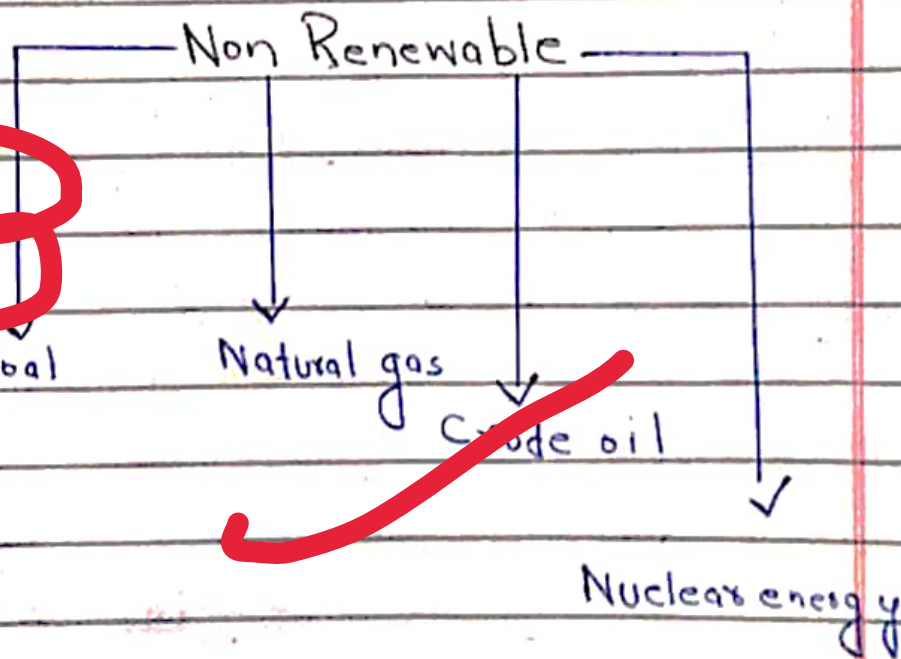 Non Renewable
oal
Natural gas
Crude oil
Nuclear energy